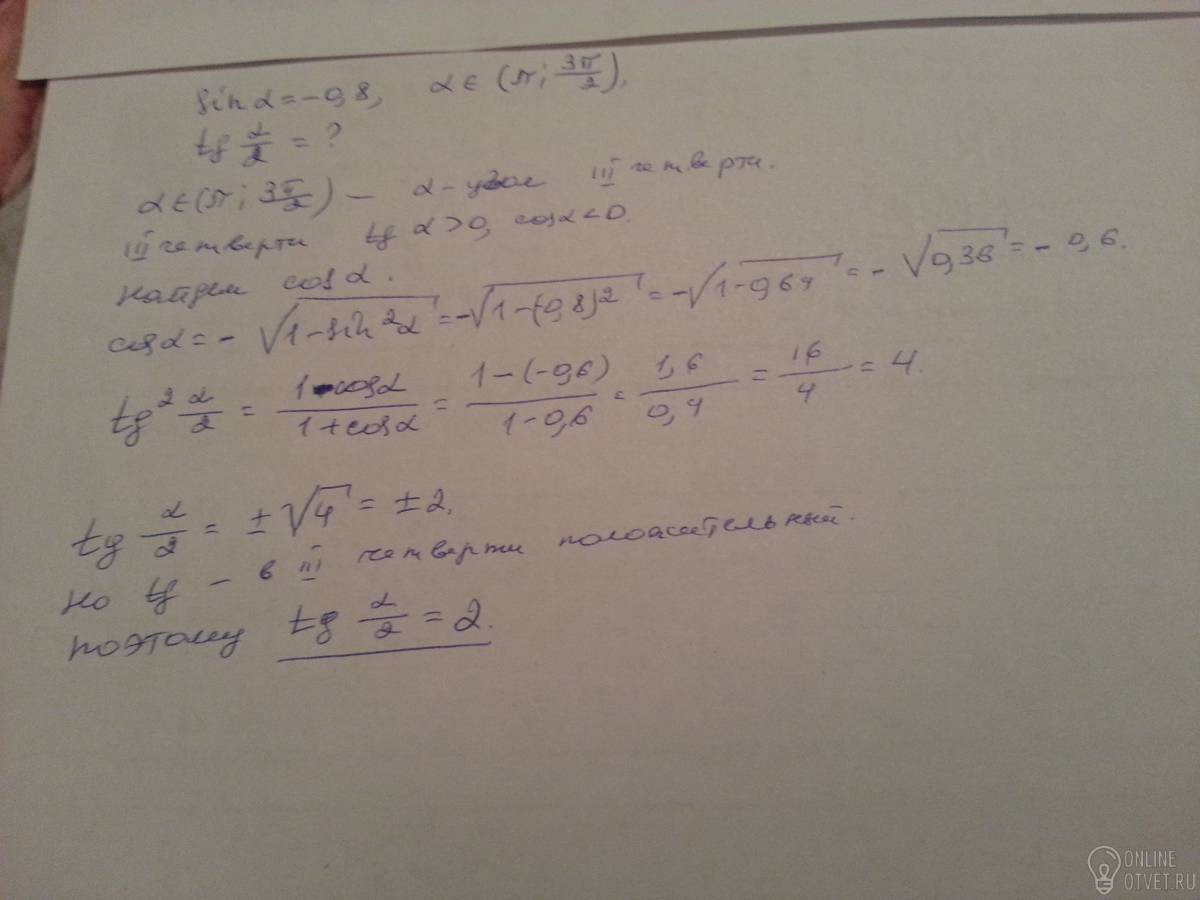 sin α = -0,8, α ∈ (π; 3π/2),
tg α/2 = ?
α ∈ (π; 3π/2) — α - угол III четверти.
III четверти tg α > 0, cos α < 0.
Найдем cos α.
cos α = - √(1 - sin²α) = -√(1-(-0,8)²) = -√(1-0,64) = - √0,36 = - 0,6.
tg² α/2 = (1 - cos α)/(1 + cos α) = (1-(-0,6))/(1-0,6) = 1,6/0,4 = 16/4 = 4.
tg α/2 = ± √4 = ± 2.
Но tg - в III четверти положительный.
поэтому tg α/2 = 2.
ONLINE
OTVET.RU